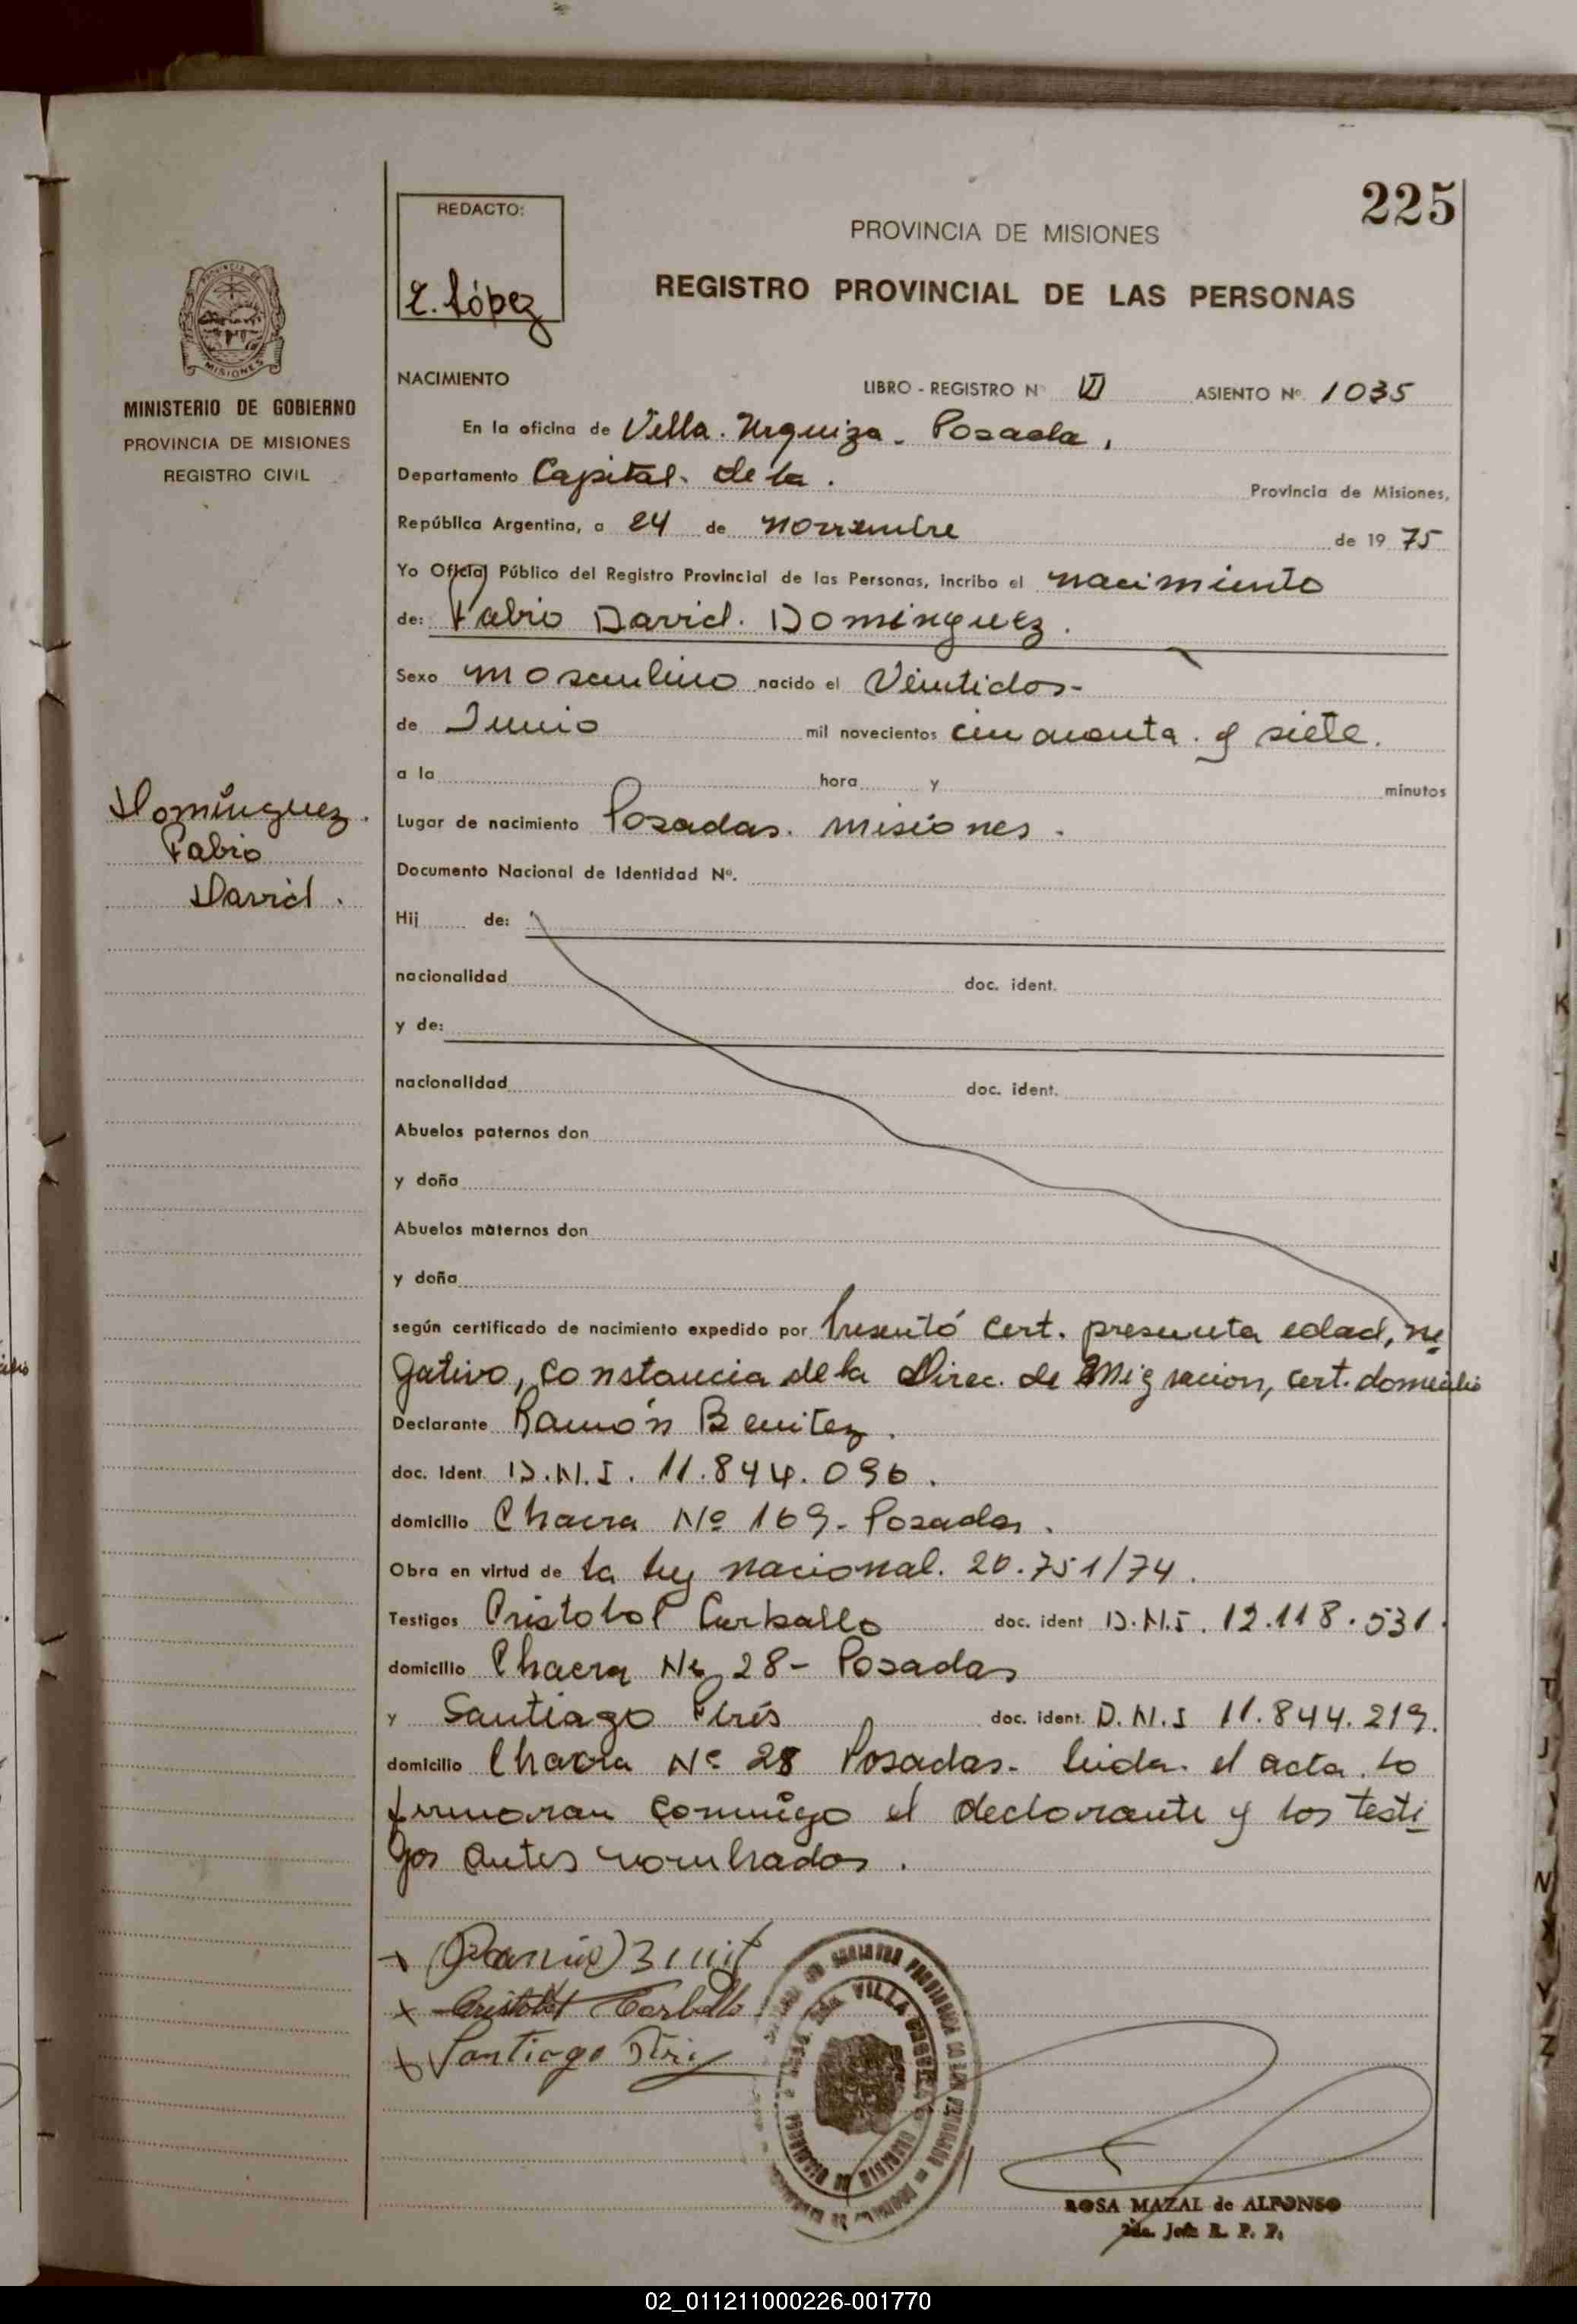 225
REDACTO:
PROVINCIA DE MISIONES
REGISTRO PROVINCIAL DE LAS PERSONAS
E. López
MINISTERIO DE GOBIERNO
PROVINCIA DE MISIONES
REGISTRO CIVIL
NACIMIENTO LIBRO - REGISTRO Nº VI ASIENTO Nº 1035
En la oficina de Villa. Urquiza - Posada,
Departamento Capital. de la. Provincia de Misiones,
República Argentina, a 24 de noviembre de 19 75
Yo Oficial Público del Registro Provincial de las Personas, incribo el nacimiento
de: Fabio David. Dominguez.
Sexo masculino nacido el Veintidos-
de Junio mil novecientos cincuenta. y siete.
a la hora y minutos
Domínguez.
Fabio
David.
Lugar de nacimiento Posadas. misiones.
Documento Nacional de Identidad Nº.
Hij de:
nacionalidad doc. ident.
y de:
nacionalidad doc. ident.
Abuelos paternos don
y doña
Abuelos maternos don
y doña
según certificado de nacimiento expedido por Presentó cert. presunta edad, ne
gativo, constancia de la Direc. de Migracion, cert. domicilio
Declarante Ramón Benitez.
doc. Ident. D.N.I. 11.844.096.
domicilio Chacra Nº 169- Posadas.
Obra en virtud de la ley nacional. 20.751/74.
Testigos Cristobal Carballo doc. ident D.N.I. 12.118.531.
domicilio Chacra Nº 28- Posadas
y Santiago Piris doc. ident. D.N.I 11.844.219.
domicilio Chacra Nº 28 Posadas- leida. el acta. lo
firmaran conmigo el declarante y los testi
gos antes nombrados.
Cristobal Carballo
Santiago Piris
VILLA URQUIZA
ROSA MAZAL de ALFONSO
2da. Jefe R. P. P.
02_011211000226-001770